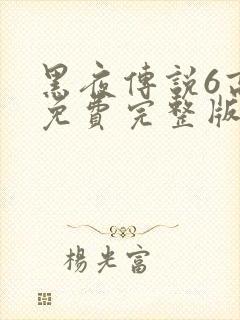 黑夜傳說6高
免費完整版
楊光富